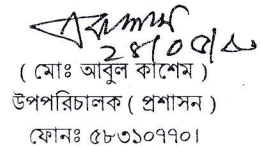 ( মোঃ আবুল কাশেম )
উপপরিচালক ( প্রশাসন )
ফোনঃ ৫৮৩১০৭৭০।